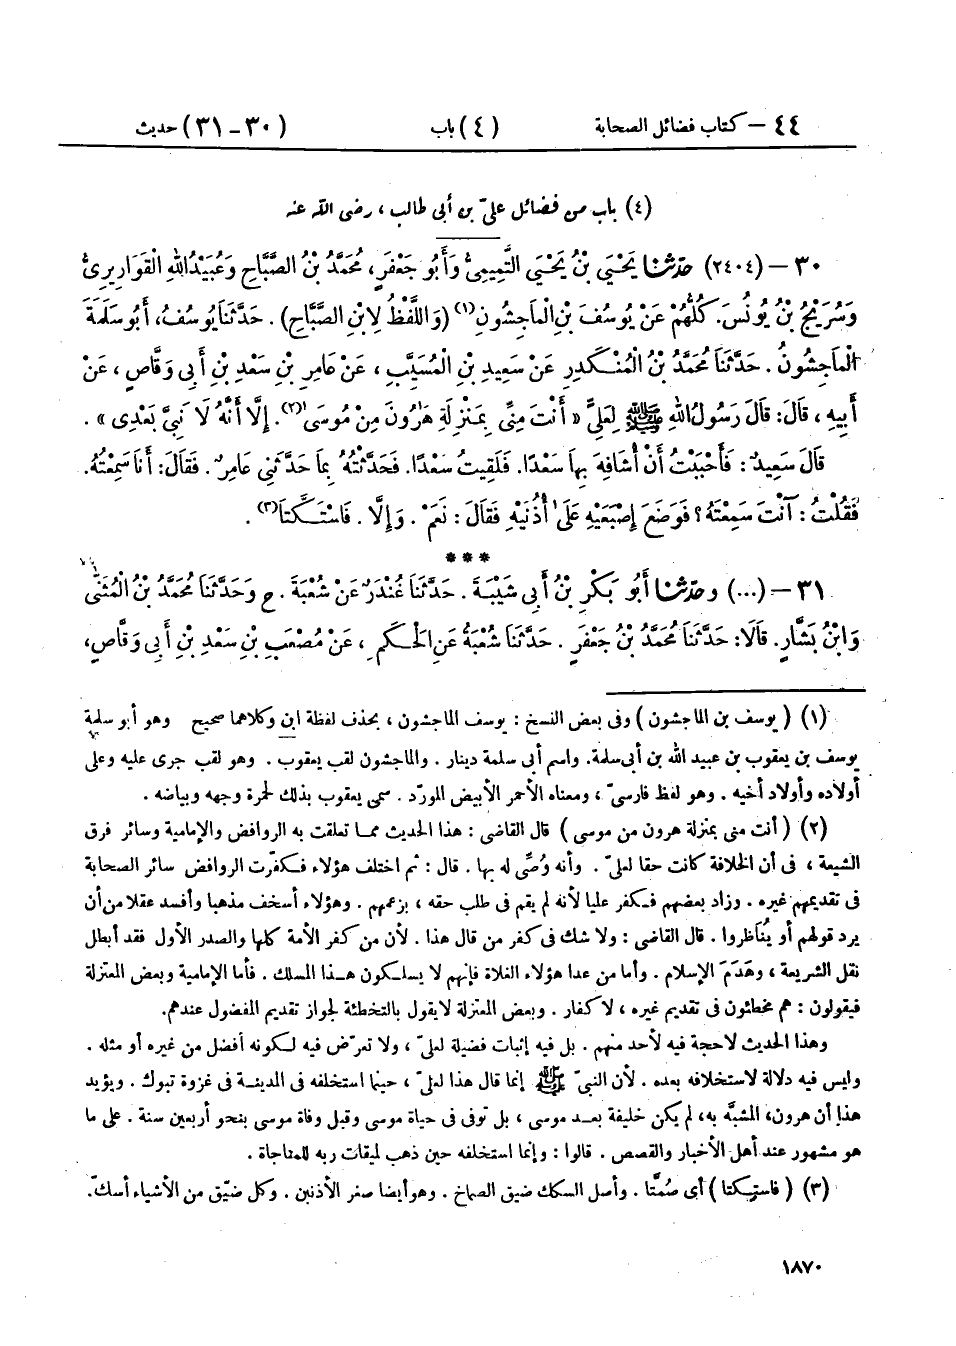 ٤٤ – كتاب فضائل الصحابة (٤) باب (٣٠ – ٣١) حديث
(٤) باب من فضائل علىّ بن أبى طالب ، رضى الله عنه
٣٠ – (٢٤٠٤) حدّثنا يَحْيَى بْنُ يَحْيَى التَّمِيمِىُّ وَأَبُو جَعْفَرٍ، مُحَمَّدُ بْنُ الصَّبَّاحِ وَعُبَيْدُ اللهِ الْقَوَارِيرِىُّ
وَسُرَيْجُ بْنُ يُونُسَ. كُلُّهُمْ عَنْ يُوسُفَ بْنِ الْمَاجِشُونِ(١) (وَاللَّفْظُ لِابْنِ الصَّبَّاحِ) . حَدَّثَنَا يُوسُفُ، أَبُو سَلَمَةَ
الْمَاجِشُونُ . حَدَّثَنَا مُحَمَّدُ بْنُ الْمُنْكَدِرِ عَنْ سَعِيدِ بْنِ الْمُسَيَّبِ ، عَنْ عَامِرِ بْنِ سَعْدِ بْنِ أَبِى وَقَّاصٍ ، عَنْ
أَبِيهِ ، قَالَ: قَالَ رَسُولُ اللهِ ﷺ لِعَلِىٍّ « أَنْتَ مِنِّى بِمَنْزِلَةِ هَارُونَ مِنْ مُوسَىٰ(٢). إِلَّا أَنَّهُ لَا نَبِىَّ بَعْدِى » .
قَالَ سَعِيدٌ : فَأَحْبَبْتُ أَنْ أُشَافِهَ بِهَا سَعْدًا. فَلَقِيتُ سَعْدًا. فَحَدَّثْتُهُ بِمَا حَدَّثَنِى عَامِرٌ . فَقَالَ: أَنَا سَمِعْتُهُ.
فَقُلْتُ : آنْتَ سَمِعْتَهُ ؟ فَوَضَعَ إِصْبَعَيْهِ عَلَىٰ أُذُنَيْهِ فَقَالَ : نَعَمْ . وَإِلَّا . فَاسْتَكَّتَا(٣) .
***
٣١ – (...) وحدّثنا أَبُو بَكْرِ بْنُ أَبِى شَيْبَةَ . حَدَّثَنَا غُنْدَرٌ عَنْ شُعْبَةَ . ح وَحَدَّثَنَا مُحَمَّدُ بْنُ الْمُثَنَّى
وَابْنُ بَشَّارٍ. قَالَا: حَدَّثَنَا مُحَمَّدُ بْنُ جَعْفَرٍ . حَدَّثَنَا شُعْبَةُ عَنِ الْحَكَمِ ، عَنْ مُصْعَبِ بْنِ سَعْدِ بْنِ أَبِى وَقَّاصٍ،
(١) ( يوسف بن الماجشون ) وفى بعض النسخ : يوسف الماجشون ، بحذف لفظة ابن وكلاهما صحيح وهو أبو سلمة
يوسف بن يعقوب بن عبيد الله بن أبى سلمة. واسم أبى سلمة دينار . والماجشون لقب يعقوب . وهو لقب جرى عليه وعلى
أولاده وأولاد أخيه . وهو لفظ فارسىّ ، ومعناه الأحمر الأبيض المورّد . سمى يعقوب بذلك لحمرة وجهه وبياضه .
(٢) ( أنت منى بمنزلة هرون من موسى ) قال القاضى : هذا الحديث مما تعلقت به الروافض والإمامية وسائر فرق
الشيعة ، فى أن الخلافة كانت حقا لعلىّ . وأنه وُصِّى له بها . قال : ثم اختلف هؤلاء فكفّرت الروافض سائر الصحابة
فى تقديمهم غيره . وزاد بعضهم فكفر عليا لأنه لم يقم فى طلب حقه ، بزعمهم . وهؤلاء أسخف مذهبا وأفسد عقلا من أن
يرد قولهم أو يُناظروا . قال القاضى : ولا شك فى كفر من قال هذا . لأن من كفر الأمة كلها والصدر الأول فقد أبطل
نقل الشريعة ، وهَدَمَ الإسلام . وأما من عدا هؤلاء الغلاة فإنهم لا يسلكون هذا المسلك . فأما الإمامية وبعض المعتزلة
فيقولون : هم مخطئون فى تقديم غيره ، لا كفار . وبعض المعتزلة لايقول بالتخطئة لجواز تقديم المفضول عندهم.
وهذا الحديث لاحجة فيه لأحد منهم . بل فيه إثبات فضيلة لعلىّ ، ولا تعرّض فيه لكونه أفضل من غيره أو مثله .
وليس فيه دلالة لاستخلافه بعده . لأن النبىّ ﷺ إنما قال هذا لعلىّ ، حينما استخلفه فى المدينة فى غزوة تبوك . ويؤيد
هذا أن هرون، المشبَّه به، لم يكن خليفة بعد موسى ، بل توفى فى حياة موسى وقبل وفاة موسى بنحو أربعين سنة . على ما
هو مشهور عند أهل الأخبار والقصص . قالوا : وإنما استخلفه حين ذهب لميقات ربه للمناجاة .
(٣) ( فاستكتا ) أى صُمَّتا . وأصل السكك ضيق الصماخ . وهو أيضا صغر الأذنين . وكل ضيّق من الأشياء أسكّ.
١٨٧٠